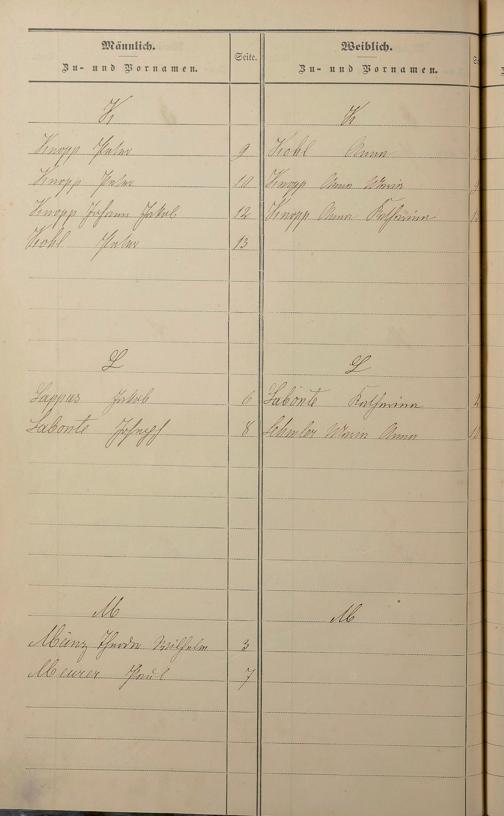 Männlich.
Zu- und Vornamen.
Seite.
Weiblich.
Zu- und Vornamen.
K
K
Knopp Peter 9
Kohl Anna
Knopp Peter 10
Knopp Anna Maria
Knopp Johann Jakob 12
Knopp Anna Katharina
Kohl Peter 13
L
L
Lappas Jakob 6
Labonte Katharina
Labonte Joseph 8
Maria Anna
M
M
Münz Theodor Wilhelm 3
Meurer Paul 7